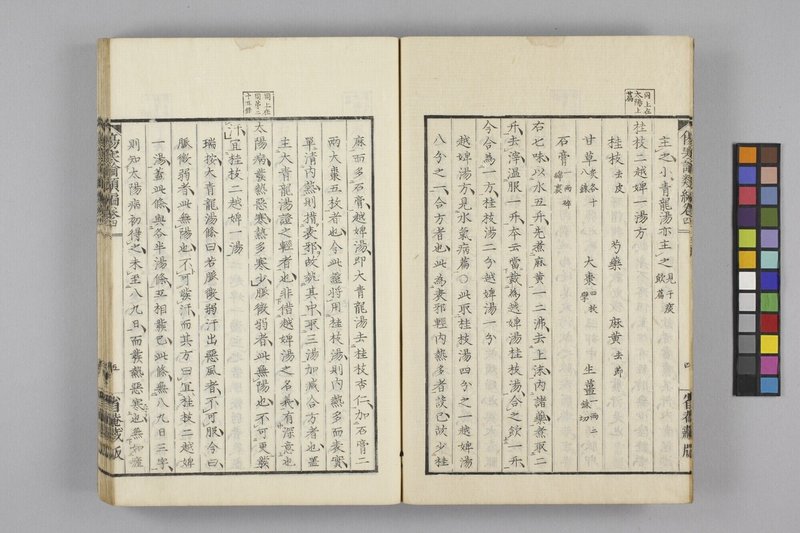 同上在
太陽上
篇
主之小青龍湯亦主之見于痰飲篇
桂枝二越婢一湯方
桂枝去皮 芍藥 麻黄去節
甘草炙各十八銖 大棗四枚擘 生薑一兩二銖切
石膏碎綿裹
右七味以水五升先煮麻黄一二沸去上沫内諸藥煮取二
升去滓温服一升本云當裁為越婢湯桂枝湯合之飲一升
今合為一方桂枝湯二分越婢湯一分
越婢湯方見水氣病篇○此取桂枝湯四分之一越婢湯
八分之一合方者也此為表邪輕内熱多者設已故少桂
傷寒論類編卷四
四
同上在
十五條
麻而多石膏越婢湯即大青龍湯去桂枝杏仁加石膏二
兩大棗五枚者也今此篇將用桂枝湯則内熱多而表實
單清内熱則猶表邪故就其中取二湯加減合方者也蓋
主大青龍湯證之輕者也非借越婢湯之名義有深意也
太陽病發熱惡寒熱多寒少脈微弱者此無陽也不可更發
汗宜桂枝二越婢一湯
瑞按大青龍湯條曰若脈微弱汗出惡風者不可服今曰
脈微弱者此無陽也不可發汗而其方曰宜桂枝二越婢
一湯蓋此條與各半湯條互相發已此條無八九日三字
則知太陽病初得之未至八九日而發熱惡寒也無如瘧
傷寒論類編卷四
五